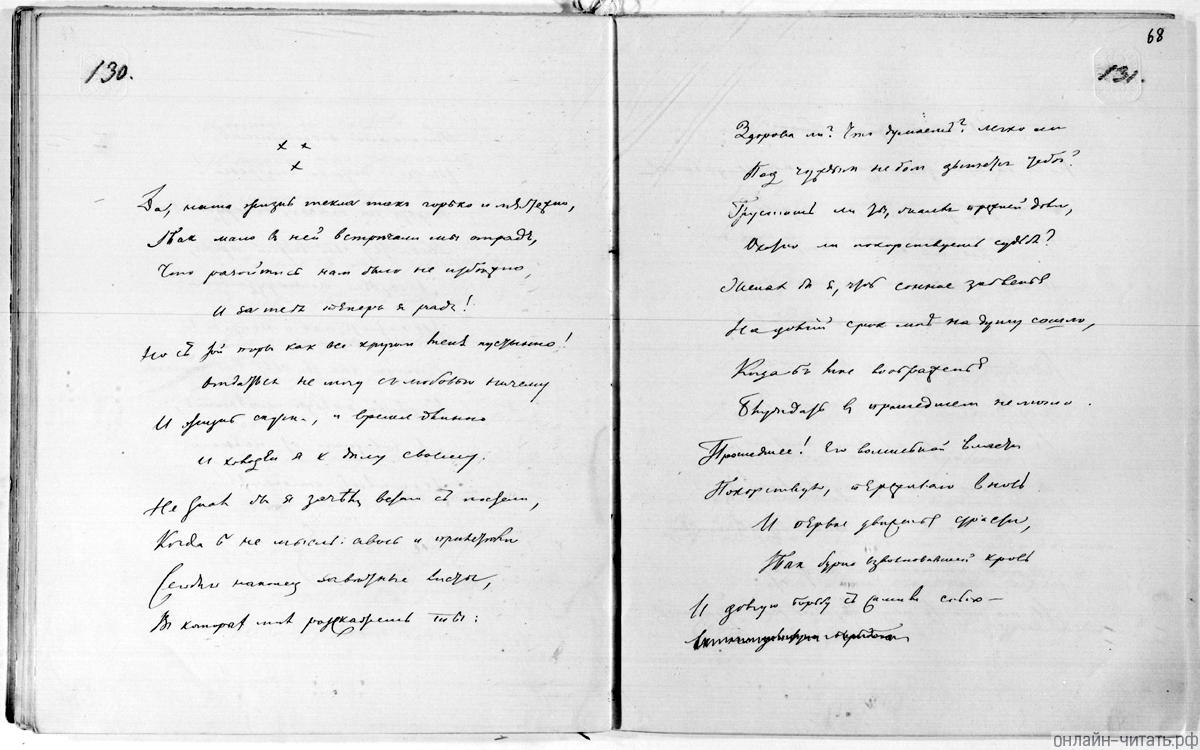 130.
× ×
×
Да, наша жизнь текла так горько и мятежно,
Так мало в ней встречали мы отрад,
Что разойтись нам было неизбежно,
И за тебя теперь я рад!
Но с той поры как все кругом меня пустынно!
Отдаться не могу с любовью ничему
И жизнь скучна, и время длинно
И холоден я к делу своему.
Не знал бы я зачем встаю с постели,
Когда б не мысль: авось и прилетели
Сегодня наконец заветные листы,
В которых мне расскажешь ты:
68
131.
Здорова ли? Что думаешь? легко ли
Под чуждым небом дышится тебе?
Грустишь ли ты, жалея прежней доли,
Охотно ли покорствуешь судьбе?
Желал бы я, чтоб сонное забвенье
На долгий срок мне на душу сошло,
Когда б мое воображенье
Блуждать в прошедшем не могло.
Прошедшее! Его волшебной власти
Покорствуя, переживаю вновь
И первое движенье страсти,
Так бурно взволновавшей кровь
И долгую борьбу с самим собою —
онлайн-читать.рф